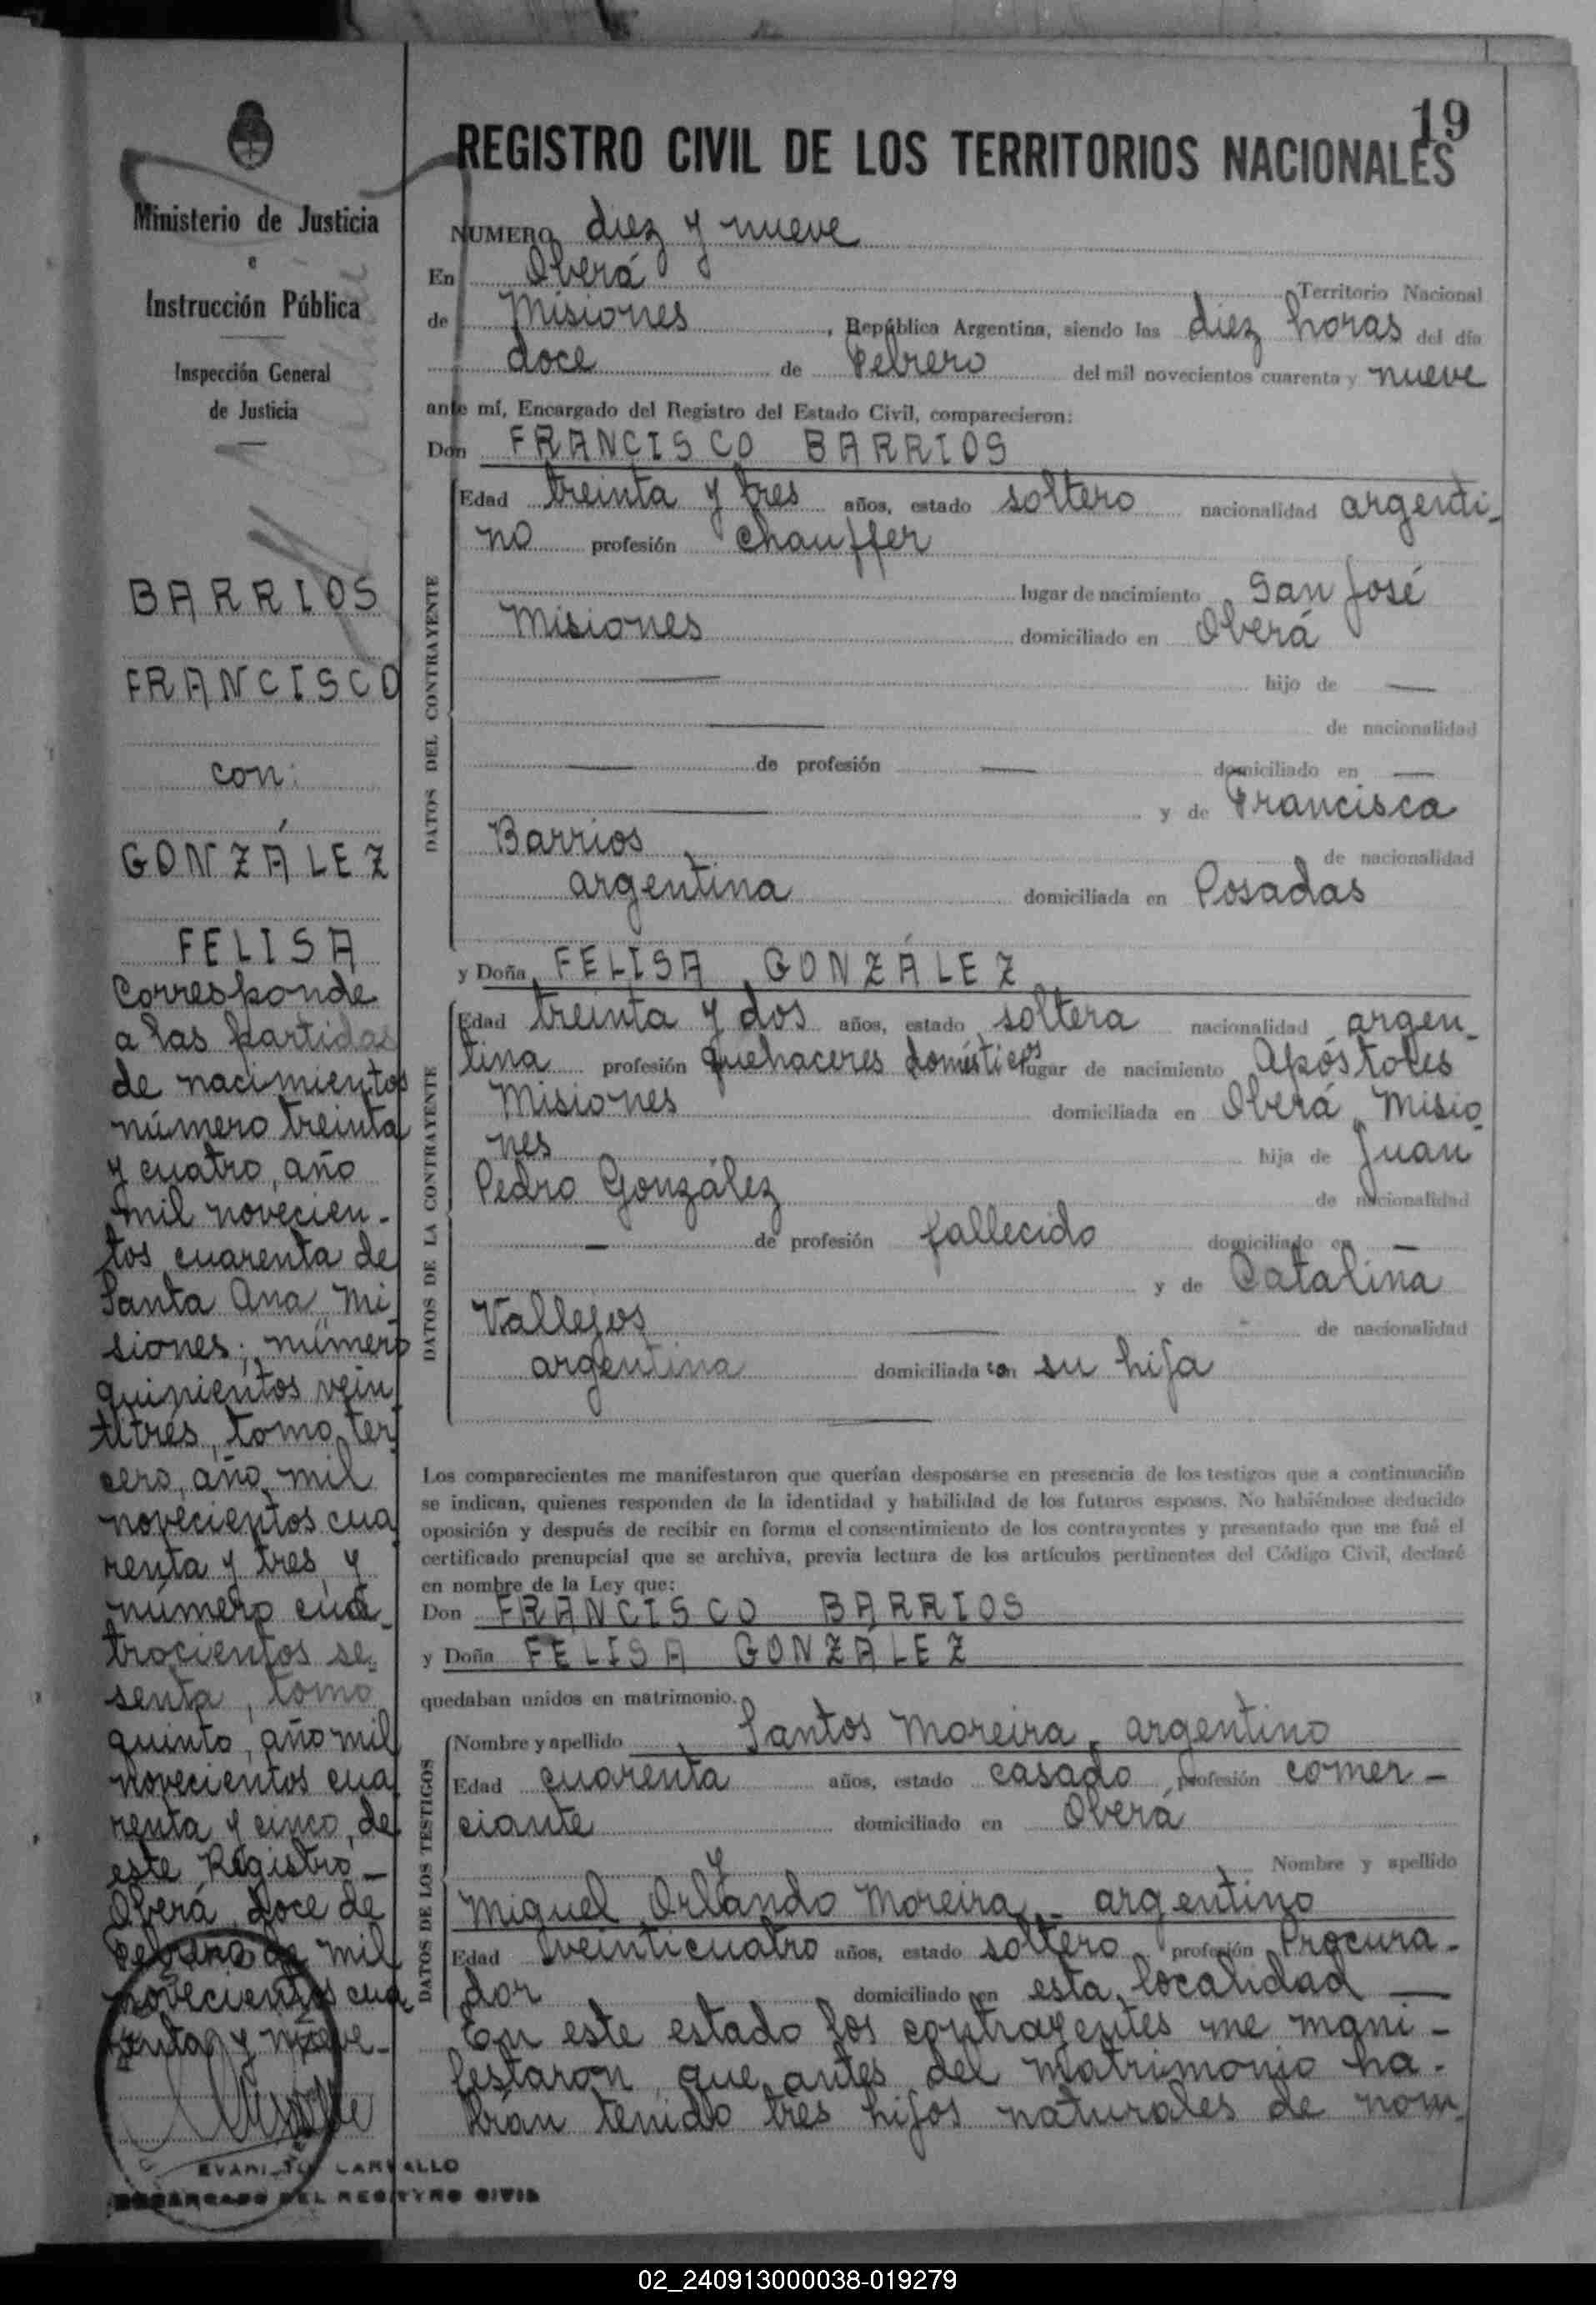 19
REGISTRO CIVIL DE LOS TERRITORIOS NACIONALES
Ministerio de Justicia
e
Instrucción Pública
Inspección General
de Justicia
BARRIOS
FRANCISCO
con:
GONZÁLEZ
FELISA
Corresponde
a las partidas
de nacimientos
número treinta
y cuatro, año
mil novecien-
tos cuarenta de
Santa Ana, Mi
siones; número
quinientos vein
titrés, tomo ter
cero, año mil
novecientos cua
renta y tres, y
número cua
trocientos se-
senta, tomo
quinto, año mil
novecientos cua
renta y cinco, de
este Registro.-
Oberá, doce de
Febrero de mil
novecientos cua
renta y nueve.-
EVARISTO CARVALLO
ENCARGADO DEL REGISTRO CIVIL
NUMERO diez y nueve
En Oberá Territorio Nacional
de Misiones, República Argentina, siendo las diez horas del día
doce de Febrero del mil novecientos cuarenta y nueve
ante mí, Encargado del Registro del Estado Civil, comparecieron:
Don FRANCISCO BARRIOS
DATOS DEL CONTRAYENTE
Edad treinta y tres años, estado soltero nacionalidad argenti-
no profesión chauffer
lugar de nacimiento San José
Misiones domiciliado en Oberá
— hijo de —
— de nacionalidad
— de profesión — domiciliado en —
— y de Francisca
Barrios de nacionalidad
argentina domiciliada en Posadas
y Doña FELISA GONZÁLEZ
DATOS DE LA CONTRAYENTE
Edad treinta y dos años, estado soltera nacionalidad argen-
tina profesión quehaceres domésticos lugar de nacimiento Apóstoles
Misiones domiciliada en Oberá, Misio-
nes hija de Juan
Pedro González de nacionalidad
— de profesión fallecido domiciliado en —
y de Catalina
Vallejos — de nacionalidad
argentina domiciliada con su hija
Los comparecientes me manifestaron que querían desposarse en presencia de los testigos que a continuación
se indican, quienes responden de la identidad y habilidad de los futuros esposos. No habiéndose deducido
oposición y después de recibir en forma el consentimiento de los contrayentes y presentado que me fué el
certificado prenupcial que se archiva, previa lectura de los artículos pertinentes del Código Civil, declaré
en nombre de la Ley que:
Don FRANCISCO BARRIOS
y Doña FELISA GONZÁLEZ
quedaban unidos en matrimonio.
DATOS DE LOS TESTIGOS
Nombre y apellido Santos Moreira, argentino
Edad cuarenta años, estado casado profesión comer-
ciante domiciliado en Oberá
y Nombre y apellido
Miguel Orlando Moreira,- argentino
Edad veinticuatro años, estado soltero profesión Procura-
dor domiciliado en esta localidad —
En este estado los contrayentes me mani-
festaron que antes del matrimonio ha-
bían tenido tres hijos naturales de nom-
02_240913000038-019279